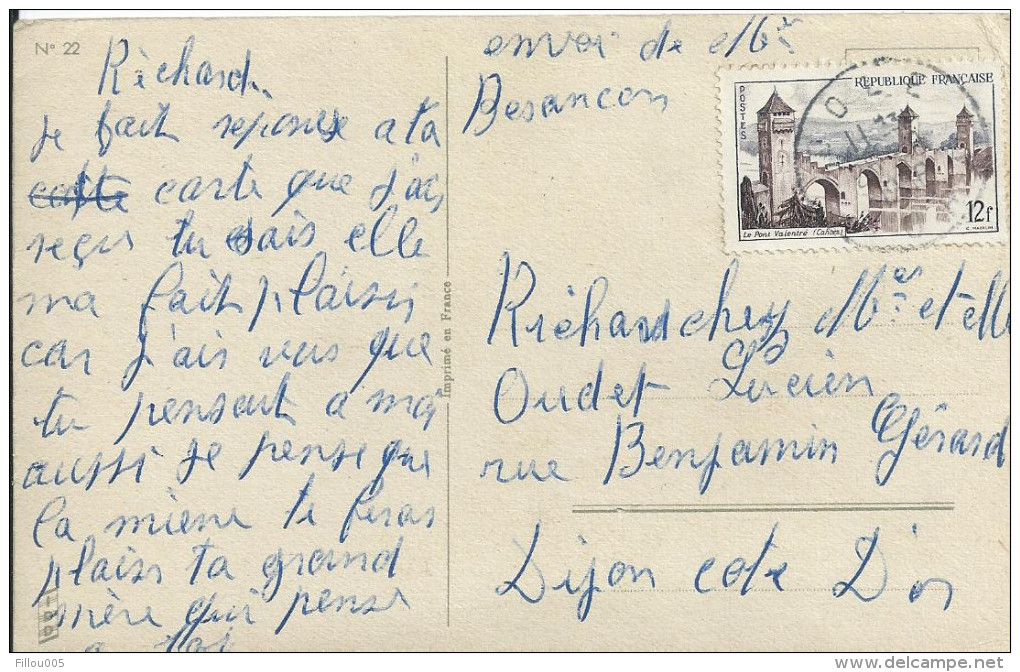 N° 22
Richard
je fait reponse a ta
carte que j'ais
reçu tu sais elle
ma fait plaisir
car j'ais vus que
tu pensait a moi
aussi je pense que
la miene te feras
plaisir ta grand
mère qui pense
a toi
Imprimé en France
envoi de Mr
Besancon
POSTES
REPUBLIQUE FRANÇAISE
Le Pont Valentré (Cahors)
12f
Richard chez Mr et Mlle
Oudet Lucien
rue Benjamin Gérard
Dijon cote D'or
Fillou005
http://www.delcampe.net